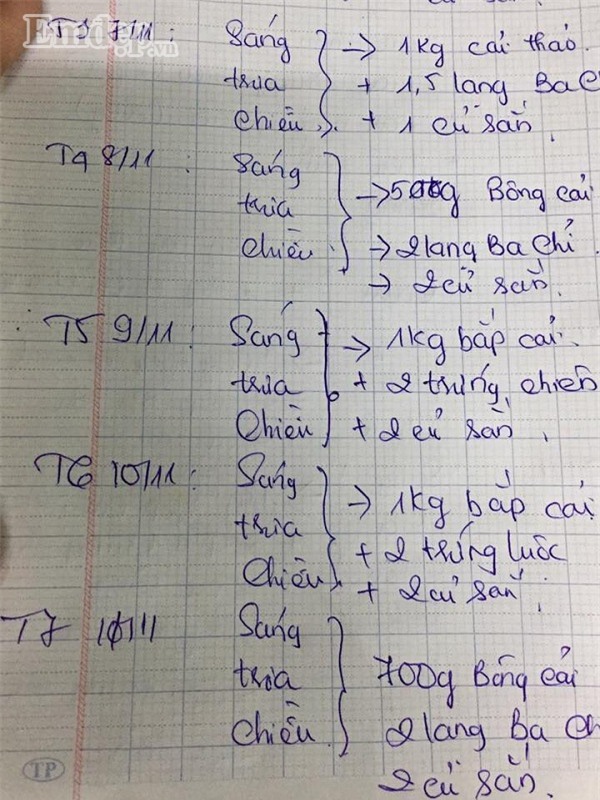 T3 7/11 : Sáng → 1kg cải thảo.
trưa + 1,5 lạng Ba C
chiều + 1 củ sắn
T4 8/11 : Sáng
→ 500g Bông cải
trưa
chiều → 2 lạng Ba chỉ
→ 2 củ sắn.
T5 9/11 : Sáng → 1kg bắp cải.
trưa + 2 trứng chiên
Chiều + 2 củ sắn.
T6 10/11 : Sáng → 1kg bắp cải
trưa + 2 trứng luộc
Chiều + 2 củ sắn.
T7 11/11 Sáng
trưa 700g Bông cải
chiều 2 lạng Ba ch
2 củ sắn.
TP